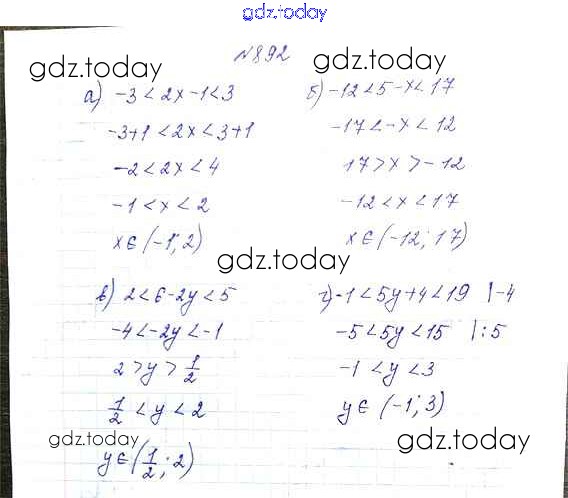 gdz.today
№892
gdz.today
gdz.today
а) -3<2x-1<3
-3+1<2x<3+1
-2<2x<4
-1<x<2
x∈(-1;2)
б) -12<5-x<17
-17<-x<12
17>x>-12
-12<x<17
x∈(-12;17)
gdz.today
в) 2<6-2y<5
-4<-2y<-1
2>y>1/2
1/2<y<2
y∈(1/2;2)
г) -1<5y+4<19 |-4
-5<5y<15 |:5
-1<y<3
y∈(-1;3)
gdz.today
gdz.today